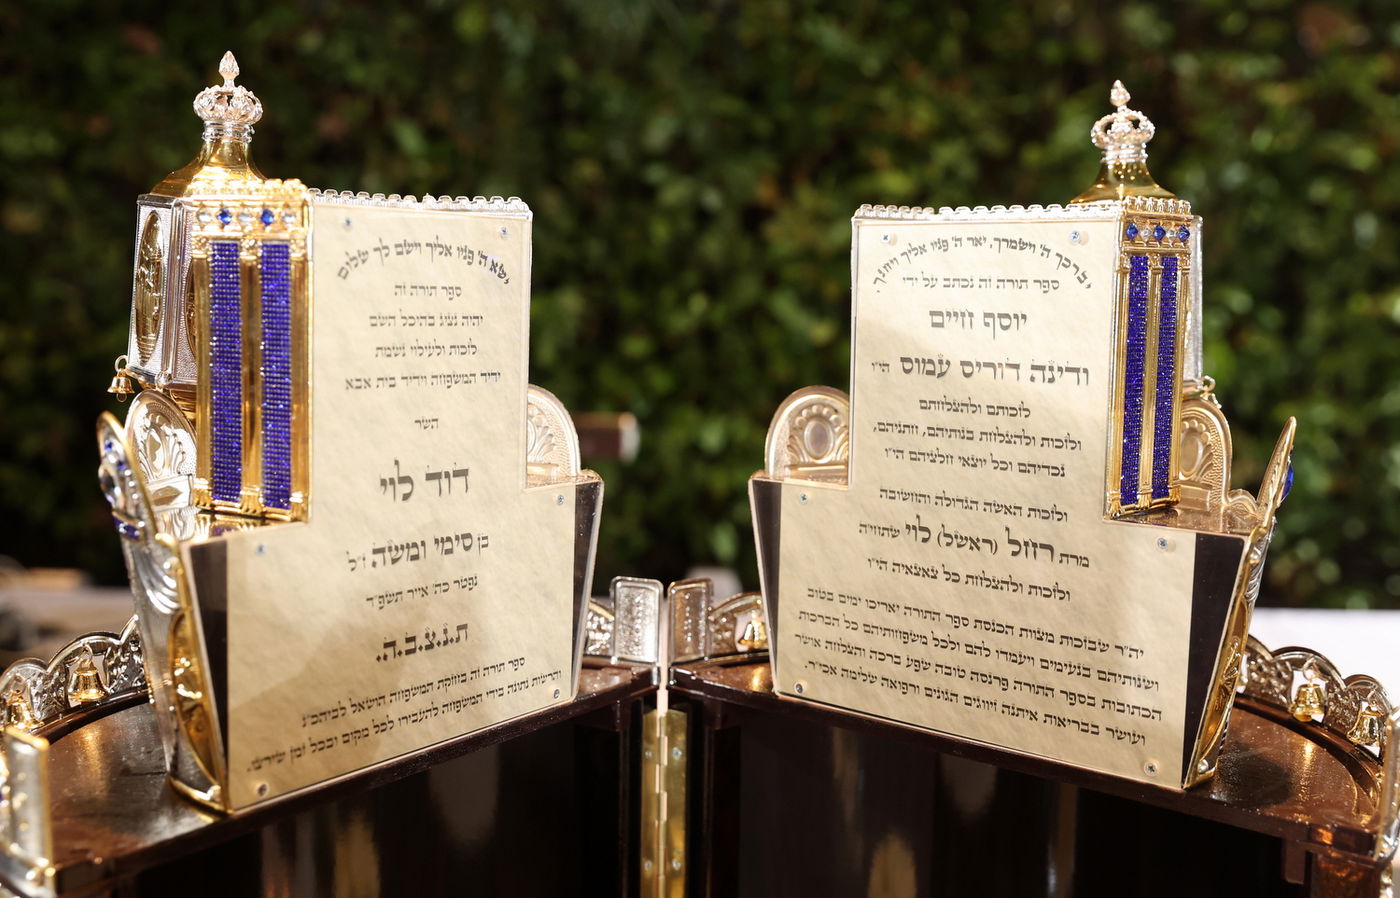 יברכך ה' וישמרך, יאר ה' פניו אליך ויחנך,
ספר תורה זה נכתב על ידי
יוסף חיים
ודינה דוריס עמוס הי"ו
לזכותם ולהצלחתם
ולזכות ולהצלחת בנותיהם, חתניהם,
נכדיהם וכל יוצאי חלציהם הי"ו
ולזכות האשה הגדולה והחשובה
מרת רחל (ראשל) לוי שתחי'ה
ולזכות ולהצלחת כל צאצאיה הי"ו
יה"ר שבזכות מצות הכנסת ספר התורה יאריכו ימים בטוב
ושנותיהם בנעימים ויעמדו להם ולכל משפחותיהם כל הברכות
הכתובות בספר התורה פרנסה טובה שפע ברכה והצלחה אושר
ועושר בבריאות איתנה זיווגים הגונים ורפואה שלימה אכי"ר.
ישא ה' פניו אליך וישם לך שלום
ספר תורה זה
יהיה נציג בהיכל השם
לזכות ולעילוי נשמת
ידיד המשפחה וידיד בית אבא
השר
דוד לוי
בן סימי ומשה ז"ל
נפטר כה' אייר תשפ"ד
ת.נ.צ.ב.ה.
ספר תורה זה בחזקת המשפחה הושאל לביהכ"נ
והרשות נתונה בידי המשפחה להעבירו לכל מקום ובכל זמן שירצו.